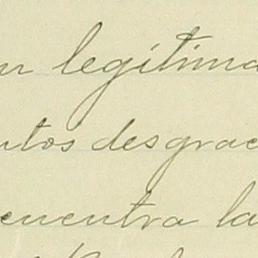 un legitima
ntos desgrac
cuentra la